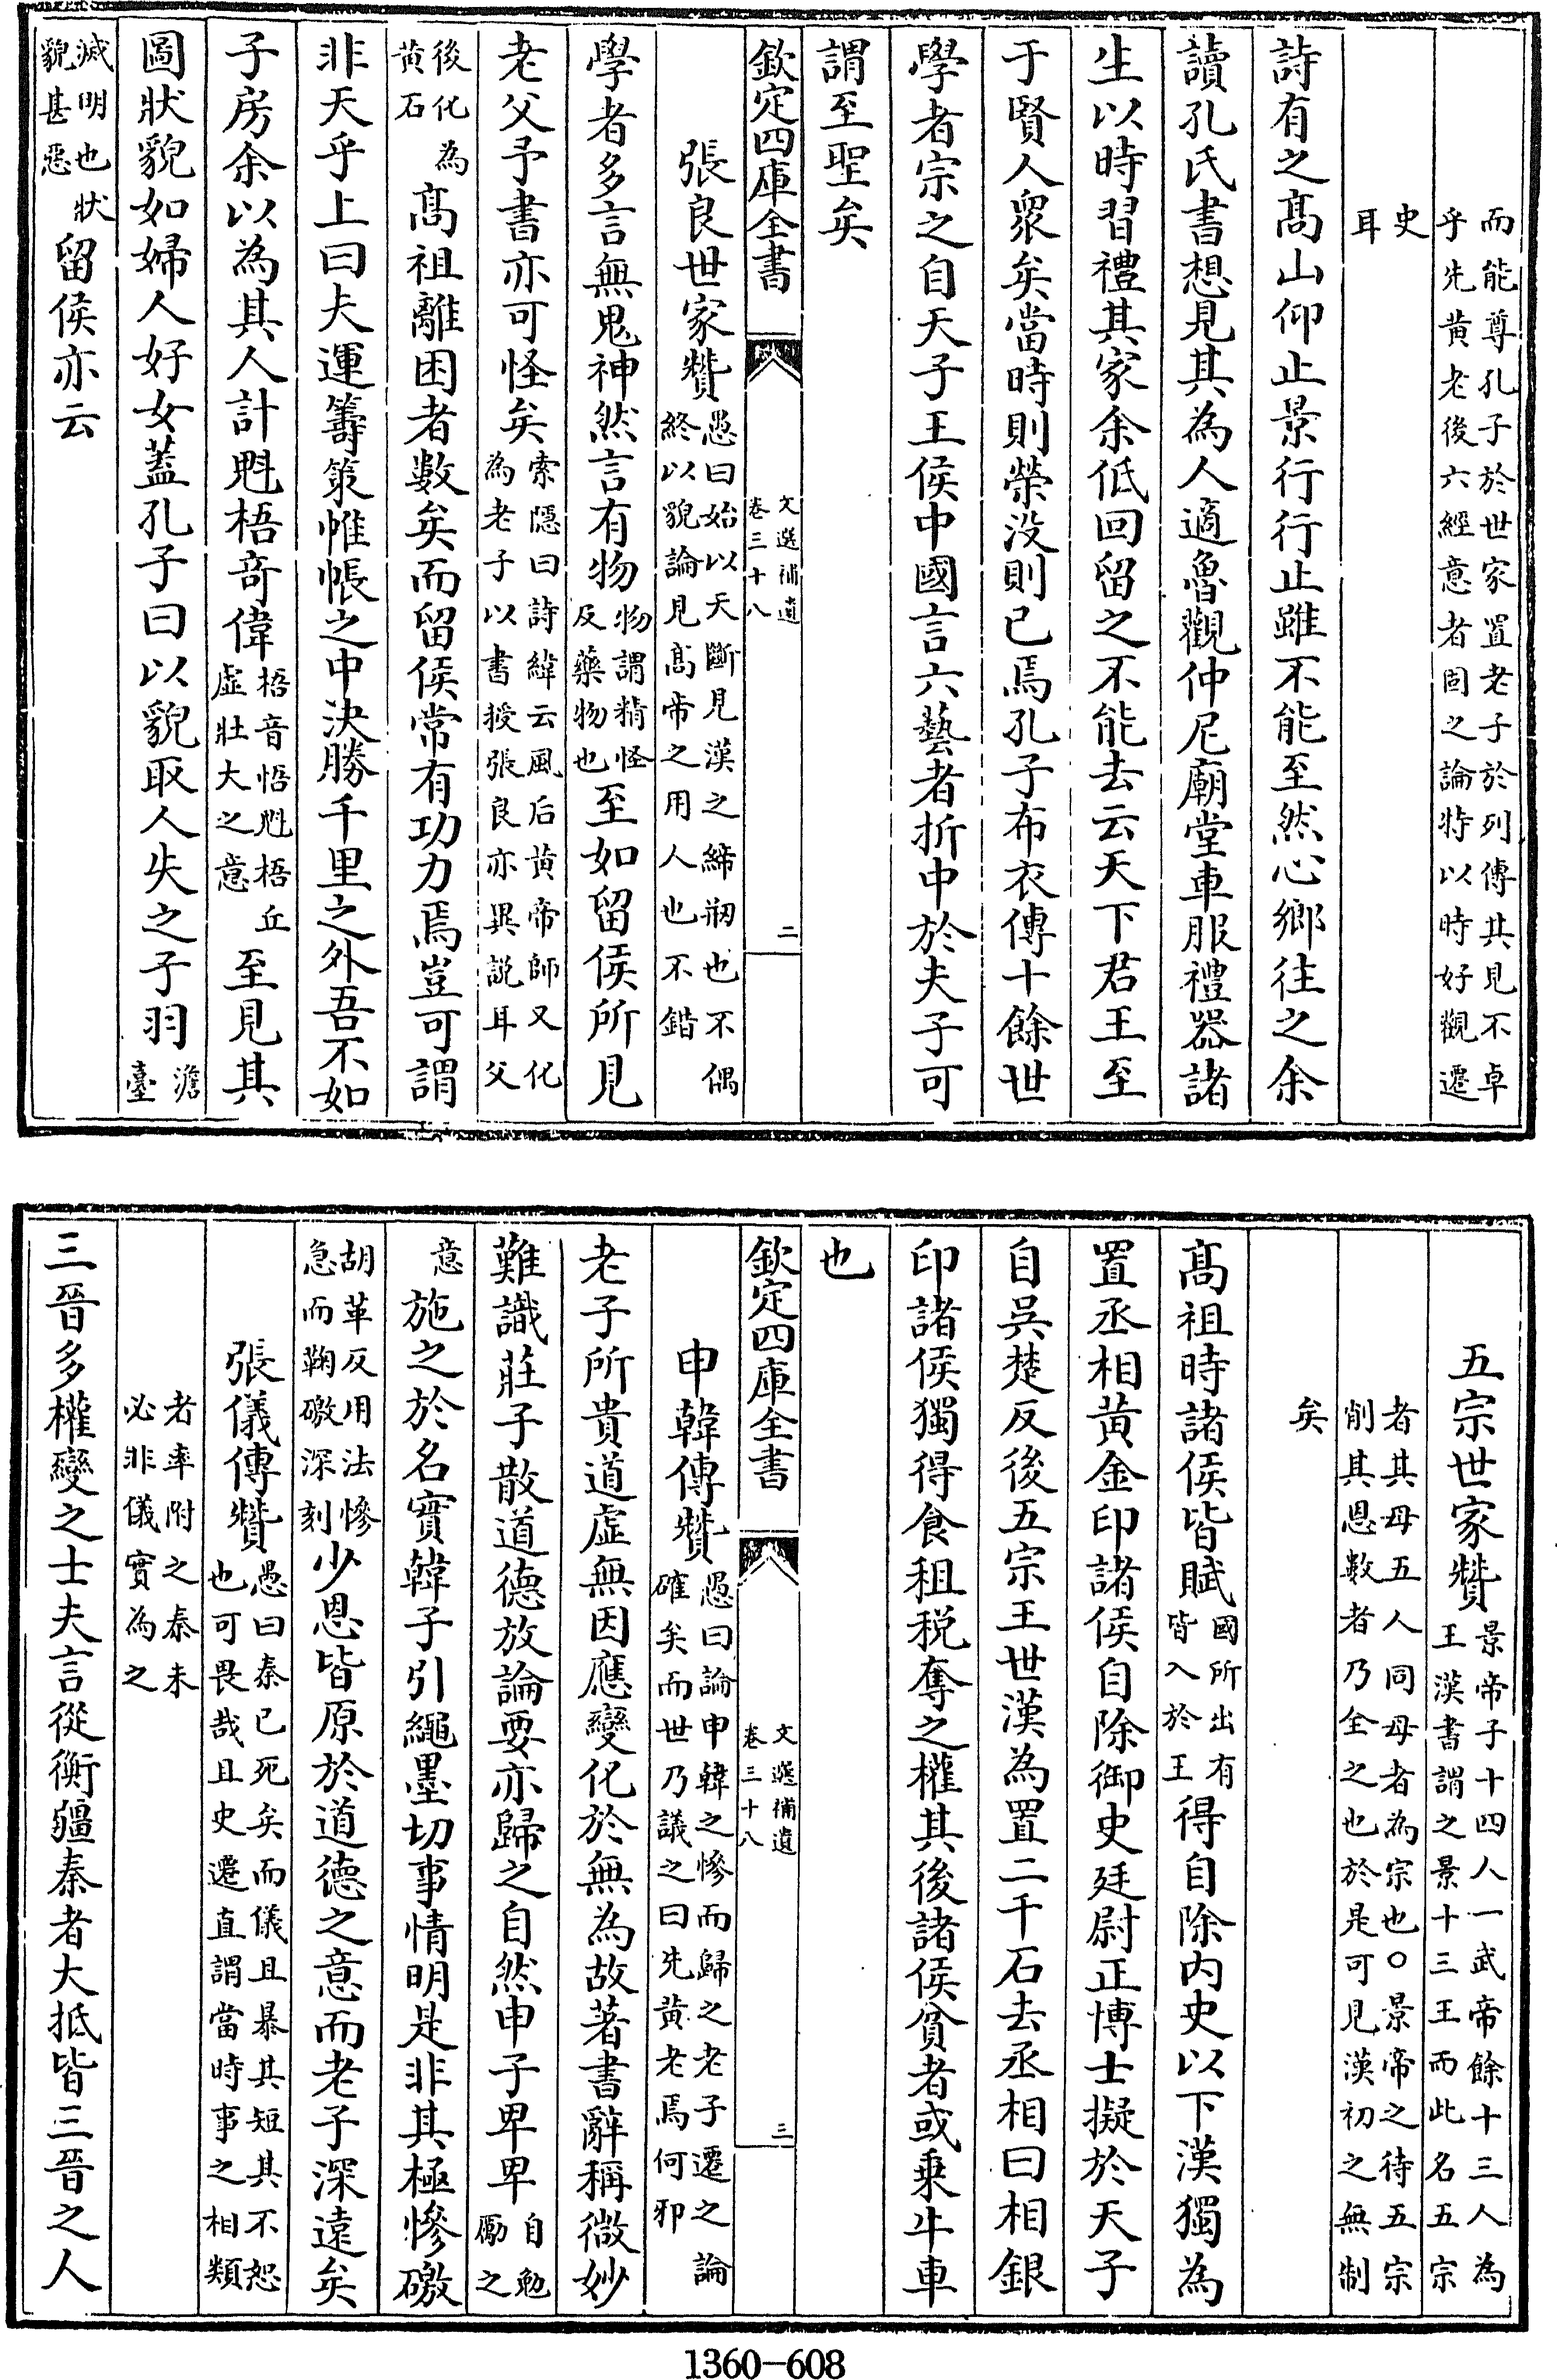 而能尊孔子於世家置老子於列傳其見不卓
乎先黄老後六經意者固之論特以時好觀遷
史
耳
詩有之髙山仰止景行行止雖不能至然心鄉往之余
讀孔氏書想見其為人適魯觀仲尼廟堂車服禮器諸
生以時習禮其家余低回留之不能去云天下君王至
于賢人衆矣當時則榮没則已焉孔子布衣傳十餘世
學者宗之自天子王侯中國言六藝者折中於夫子可
謂至聖矣
欽定四庫全書
文選補遺
卷三十八
二
張良世家贊
愚曰始以天斷見漢之締剏也不偶
終以貌論見髙帝之用人也不錯
學者多言無鬼神然言有物
物謂精怪
及藥物也
至如留侯所見
老父予書亦可怪矣
索隱曰詩緯云風后黄帝師又化
為老子以書授張良亦異説耳父
後化為
黄石
髙祖離困者數矣而留侯常有功力焉豈可謂
非天乎上曰夫運籌策帷帳之中決勝千里之外吾不如
子房余以為其人計魁梧奇偉
梧音悟魁梧丘
虛壯大之意
至見其
圖狀貌如婦人好女蓋孔子曰以貌取人失之子羽
澹
臺
滅明也狀
貌甚惡
留侯亦云
五宗世家贊
景帝子十四人一武帝餘十三人為
王漢書謂之景十三王而此名五宗
者其母五人同母者為宗也○景帝之待五宗
削其恩數者乃全之也於是可見漢初之無制
矣
髙祖時諸侯皆賦
國所出有
皆入於王
得自除内史以下漢獨為
置丞相黄金印諸侯自除御史廷尉正博士擬於天子
自吳楚反後五宗王世漢為置二千石去丞相曰相銀
印諸侯獨得食租税奪之權其後諸侯貧者或乗牛車
也
欽定四庫全書
文選補遺
卷三十八
三
申韓傳贊
愚曰論申韓之慘而歸之老子遷之論
確矣而世乃議之曰先黄老焉何邪
老子所貴道虛無因應變化於無為故著書辭稱微妙
難識莊子散道德放論要亦歸之自然申子卑卑
自勉
勵之
意
施之於名實韓子引繩墨切事情明是非其極慘礉
胡革反用法慘
急而鞠礉深刻
少恩皆原於道德之意而老子深遠矣
張儀傳贊
愚曰秦已死矣而儀且暴其短其不恕
也可畏哉且史遷直謂當時事之相類
者率附之秦未
必非儀實為之
三晉多權變之士夫言從衡疆秦者大抵皆三晉之人
1360-608